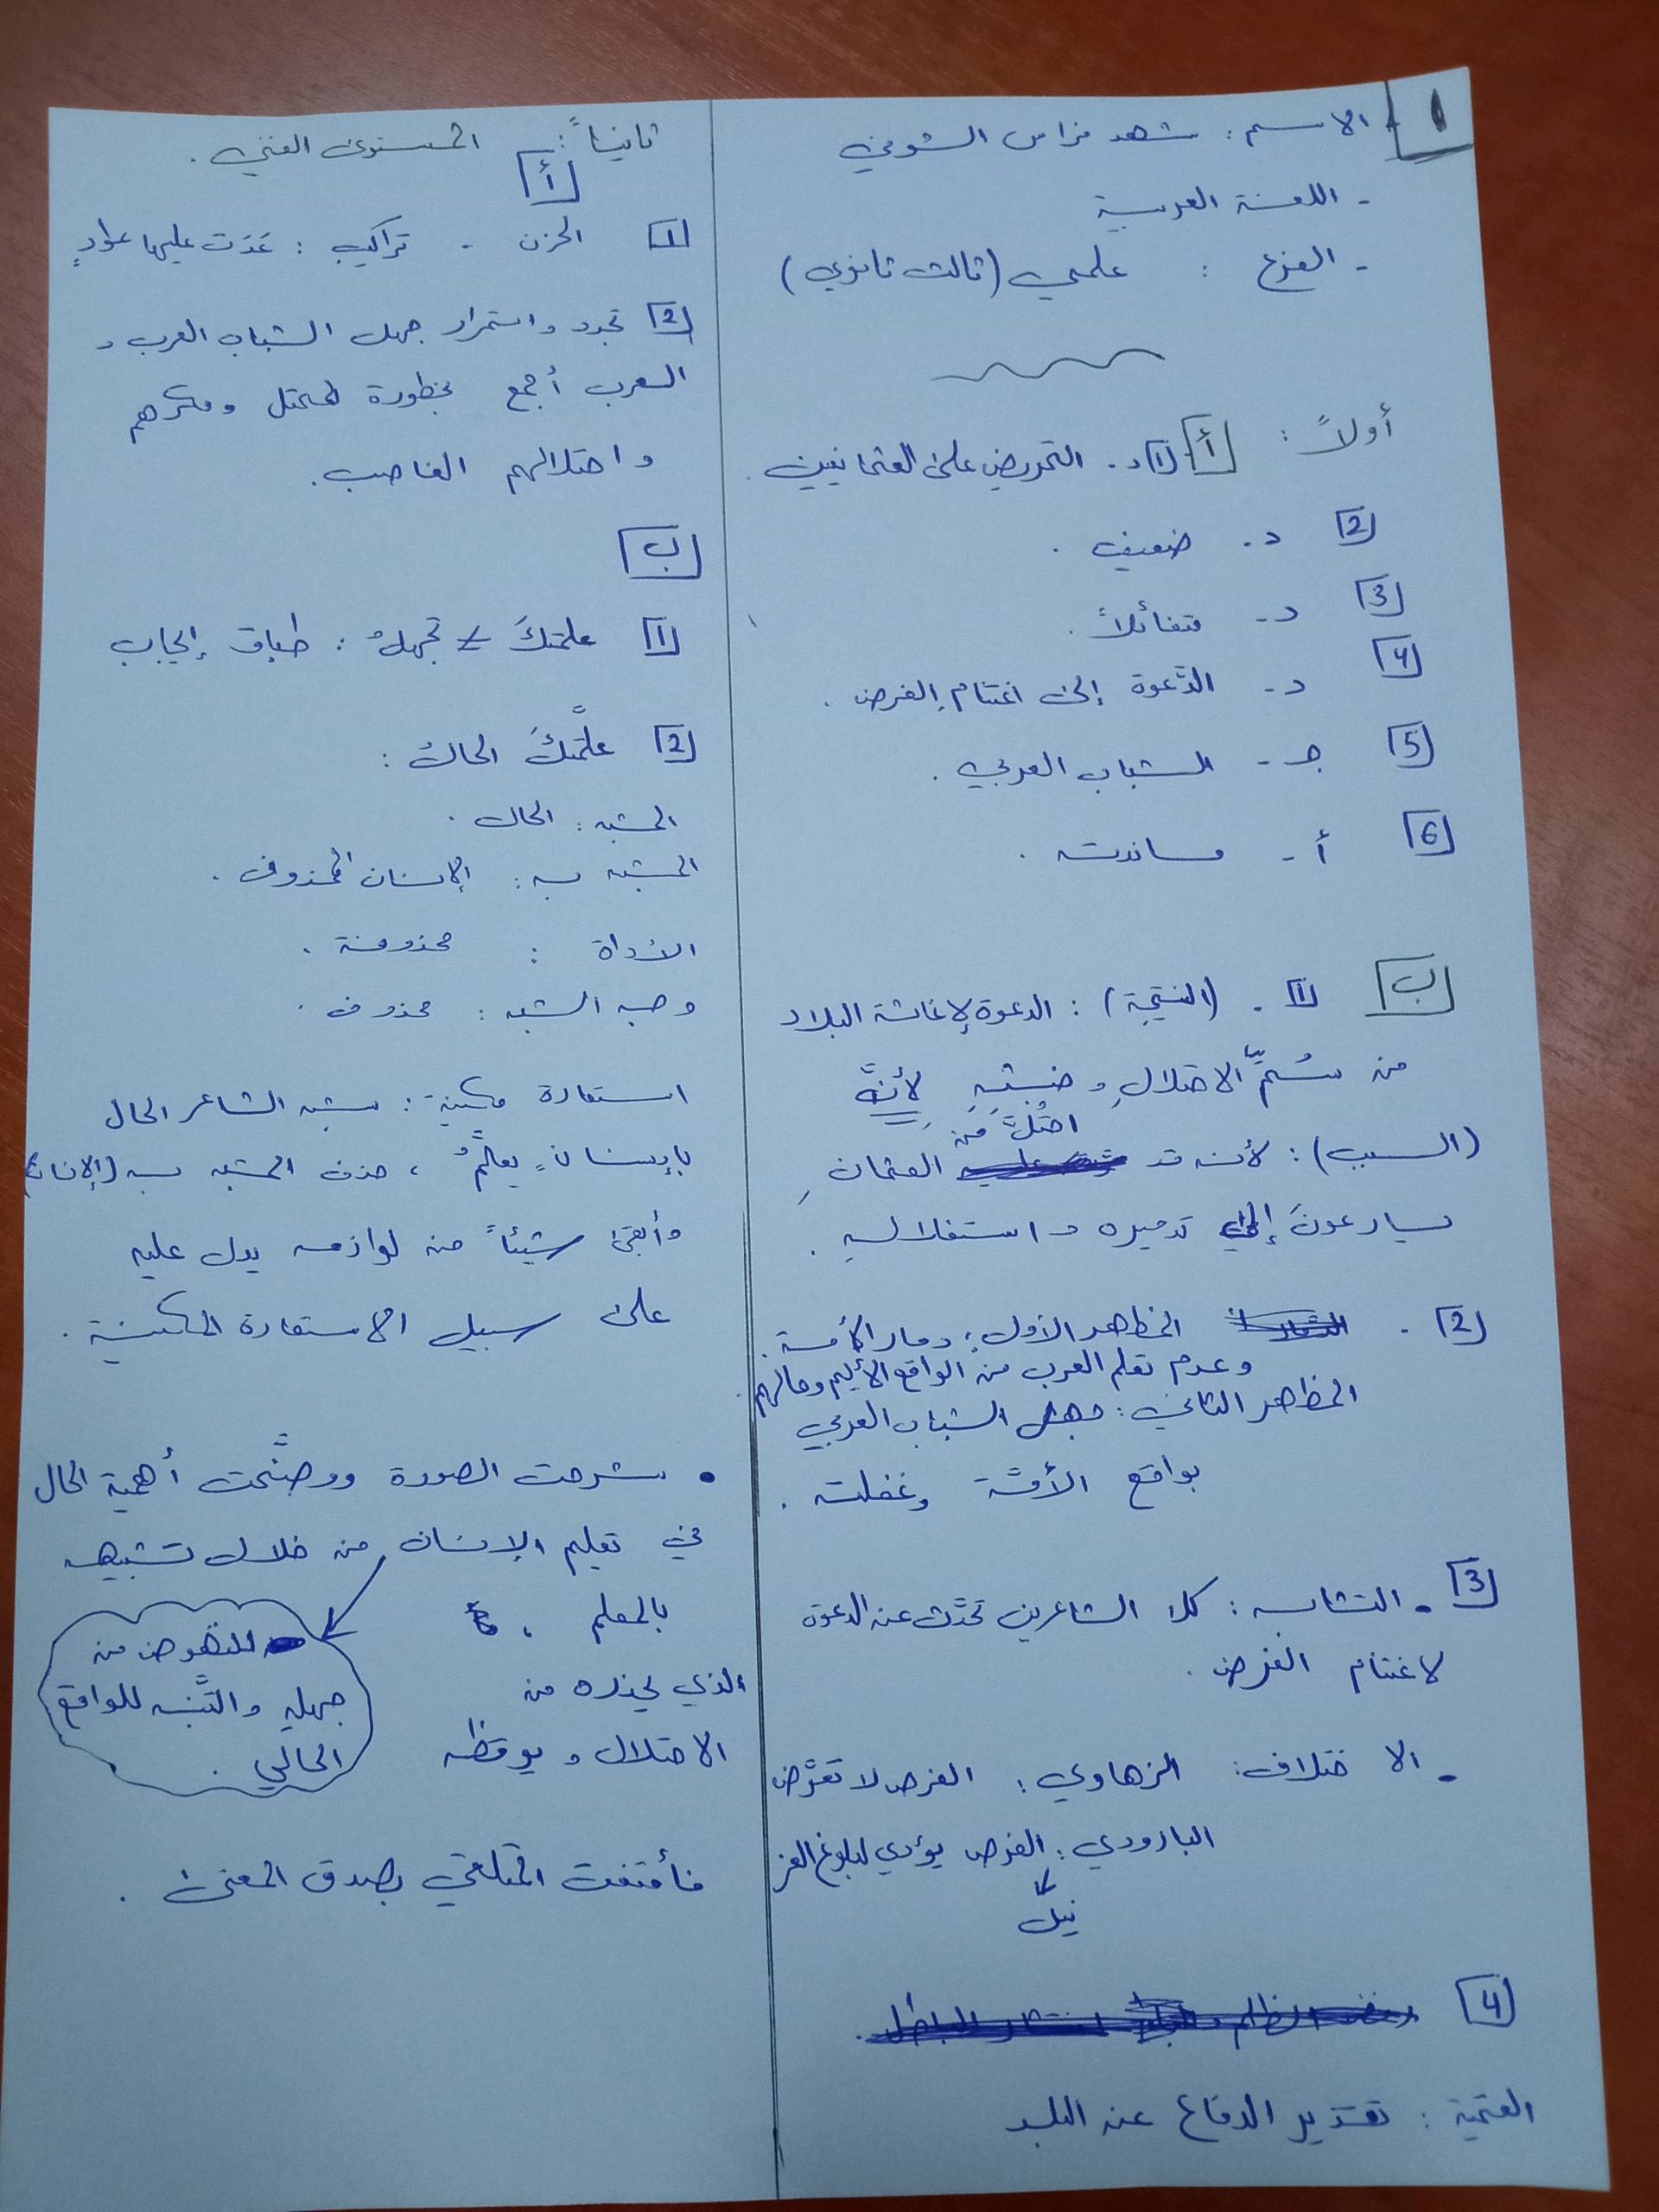 1
الاسم: شهد فراس الشوفي
- اللغة العربية
- الفرع : علمي (ثالث ثانوي)
أولاً: أ (1) د. التحريض على العثمانيين.
2 د- ضعيف.
3 د- متفائلاً.
4 د- الدَّعوة إلى اغتنام الفرص.
5 جـ- الشباب العربي.
6 أ- ساندت.
ب 1. (النتيجة): الدعوة لإغاثة البلاد
من سُمِّ الاحتلالِ و خبثهِ لأنَّه
(السبب): لأنه قد احتُلَّ مِن العثمان
يسارعونَ إلى تدميره و استغلاله.
2. المظهر الأول: دمار الأمة.
وعدم تعلم العرب من الواقع الأليم وحالهم.
المظهر الثاني: جهل الشباب العربي
بواقع الأمَّة وغفلته.
3. التشابه: كلا الشاعرين تحدَّث عن الدعوة
لاغتنام الفرص.
. الاختلاف: الزهاوي: الفرص لا تعوَّض
البارودي: الفرص يؤدي لبلوغ العز
نيل
4
القيمة: تقدير الدفاع عن البلد
ثانياً: المستوى الفني.
أ
1 الحزن - تراكيب: عَدَت عليها عوادٍ
2 تجدد واستمرار جهل الشباب العرب و
العرب أجمع بخطورة المحتل ومكرهم
واحتلالهم الغاصب.
ب
1 علمتكَ ≠ تجهلُ: طباق إيجاب
2 علَّمتكَ الحالُ:
المشبه: الحال.
المشبه به: الإنسان المحذوف.
الأداة : محذوفة.
وجه الشبه: محذوف.
استعارة مكنية: شبه الشاعر الحال
بإنسانٍ يعلِّمُ، حذف المشبه به (الإنسان)
وأبقى شيئاً من لوازمه يدل عليه
على سبيل الاستعارة المكنية.
• شرحت الصورة ووضَّحت أهمية الحال
في تعليم الإنسان من خلال تشبيهه
بالمعلم،
الذي يحذره من
الاحتلال و يوقظه
للنهوض من
جهلهِ والتَّنبه للواقع
الحالي.
فأقنعت المتلقي بصدق المعنى.